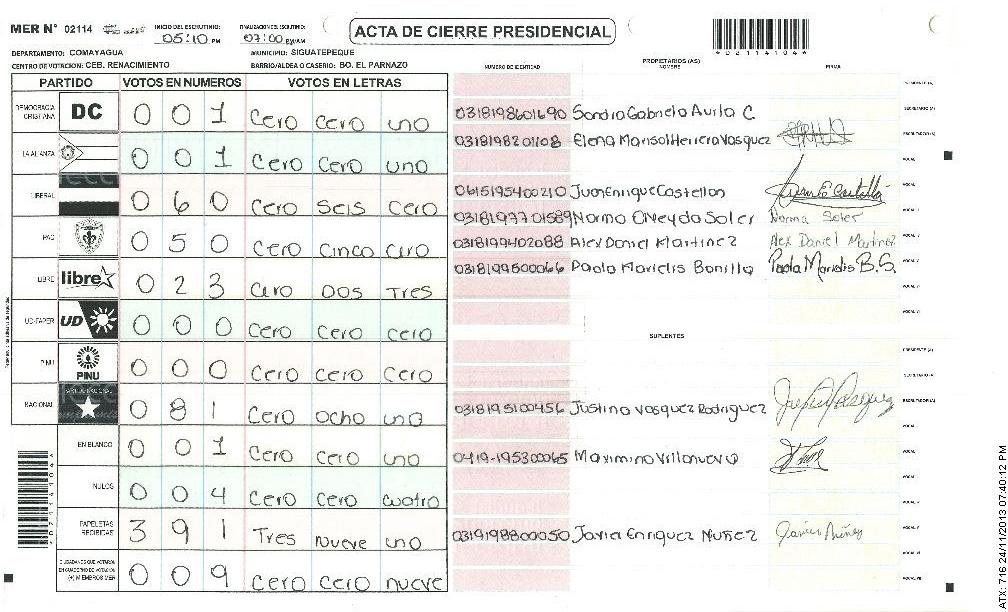 MER N° 02114 INICIO DEL ESCRUTINIO: 05:10 PM FINALIZACION DEL ESCRUTINIO: 07:00 PM/AM ACTA DE CIERRE PRESIDENCIAL
DEPARTAMENTO: COMAYAGUA MUNICIPIO: SIGUATEPEQUE
CENTRO DE VOTACION: CEB. RENACIMIENTO BARRIO/ALDEA O CASERIO: BO. EL PARNAZO
NUMERO DE IDENTIDAD PROPIETARIOS (AS) NOMBRE FIRMA
PARTIDO VOTOS EN NUMEROS VOTOS EN LETRAS
DEMOCRACIA CRISTIANA DC 0 0 1 Cero Cero uno
LA ALIANZA 0 0 1 Cero Cero uno
LIBERAL 0 6 0 Cero seis cero
PAC 0 5 0 Cero Cinco Cero
LIBRE libre 0 2 3 Cero Dos Tres
UD-FAPER UD 0 0 0 Cero Cero Cero
PINU PINU 0 0 0 Cero Cero Cero
NACIONAL 0 8 1 Cero ocho uno
EN BLANCO 0 0 1 Cero Cero uno
NULOS 0 0 4 Cero Cero cuatro
PAPELETAS RECIBIDAS 3 9 1 Tres Nueve uno
CIUDADANOS QUE VOTARON EN CUADERNO DE VOTACION (+) MIEMBROS MER 0 0 9 Cero Cero nueve
0318198601690 Sandra Gabriela Avila C
0318198201108 Elena Marisol Herrera Vasquez
0615195400210 Juan Enrique Castellon
0318197701589 Norma ONeyda Soler Norma Soler
0318199402088 Alex Daniel Martinez Alex Daniel Martinez
0318199500066 Paola Marielis Bonilla Paola Marielis B.S.
SUPLENTES
0318195100456 Justino Vasquez Rodriguez
0419-195300065 Maximino Villanueva
0319198800050 Javier Enriquez Nuñez Javier Núñez
PRESIDENTE (A)
SECRETARIO (A)
ESCRUTADOR (A)
VOCAL
ATX: 716 24/11/2013 07:40:12 PM